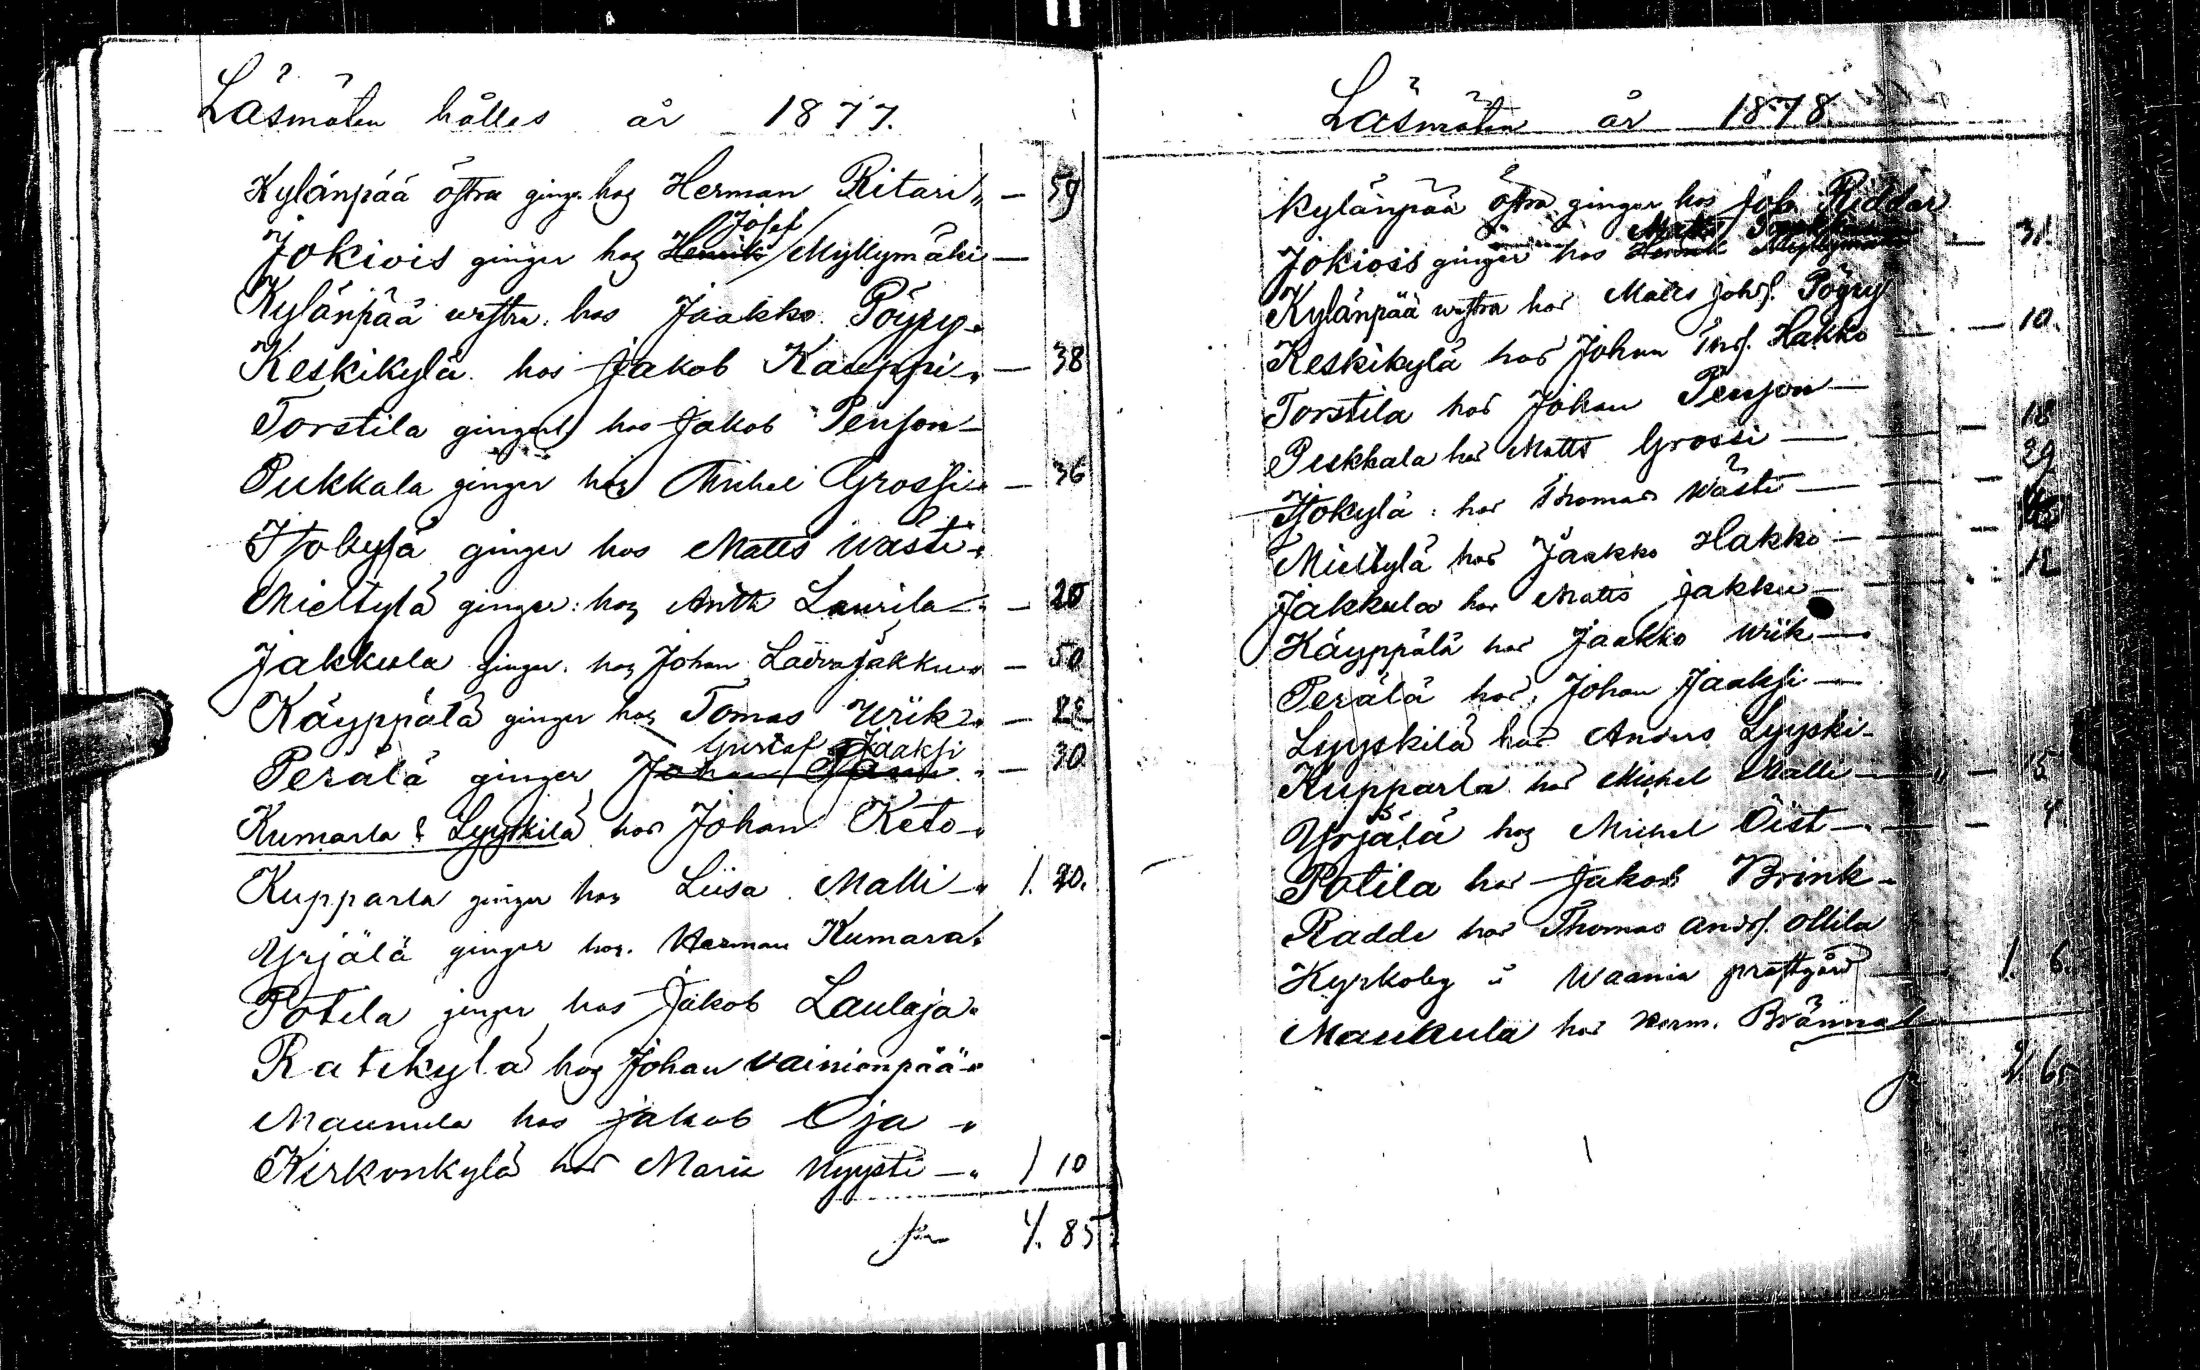 Läsmöten hålles år 1877.
Kylänpää östra ginge. hos Herman Ritari " — 59
Josef
Jokiois ginger hos Henrik Myllymäki —
Kylänpää westra. hos Jaakko Pöyry "
Keskikylä. hos Jakob Kauppi " — 38
Torstila ginger hos Jakob Penson —
Pukkala ginger hos Mihel Grossi " — 36
Isokylä ginger hos Matts Wästi "
Mieltylä ginger: hos Antti Laurila " — 20
Jakkula ginger. hos Johan Lairajakku " — 50
Käyppälä ginger hos Tomas Wiik " — 22
Gustaf Jaaksi
Perälä ginger Johan " — 30
Kumarla & Lyyskilä hos Johan Keto "
Kupparla ginger hos Liisa Malli — " 1. 20.
Yrjälä ginger hos. Herman Kumara "
Potila ginger hos Jakob Laulaja "
Ratikylä hos Johan Vainionpää "
Maunula hos Jakob Oja "
Kirkonkylä hos Maria Nyysti — " 1 10
85
Läsmöten år 1878
Kylänpää östra ginger hos Joh. Riddar
Matts
Jokiois ginger hos Henrik Myllymäki — 31.
Kylänpää westra hos Matts Johs. Pöyry
Keskikylä hos Johan Hakko — 10.
Torstila hos Johan Penson —
Pukkala hos Matts Grossi — 18
Isokylä: hos Thomas Wästi — 29
Mieltylä hos Jaakko Hakko —
Jakkula hos Matts Jakku — 12
Käyppälä hos Jaakko Wiik —
Perälä hos Johan Jaaksi —
Lyyskilä hos Anders Lyyski —
Kupparla hos Michel Malli — " — 15
Yrjälä hos Michel Öist — 4
Potila hos Jakob Brink "
Radde hos Thomas Ands. Ollila
Kyrkoby i Waania prästgård — 1. 6.
Maukula hos Herm. Bränna
2 65